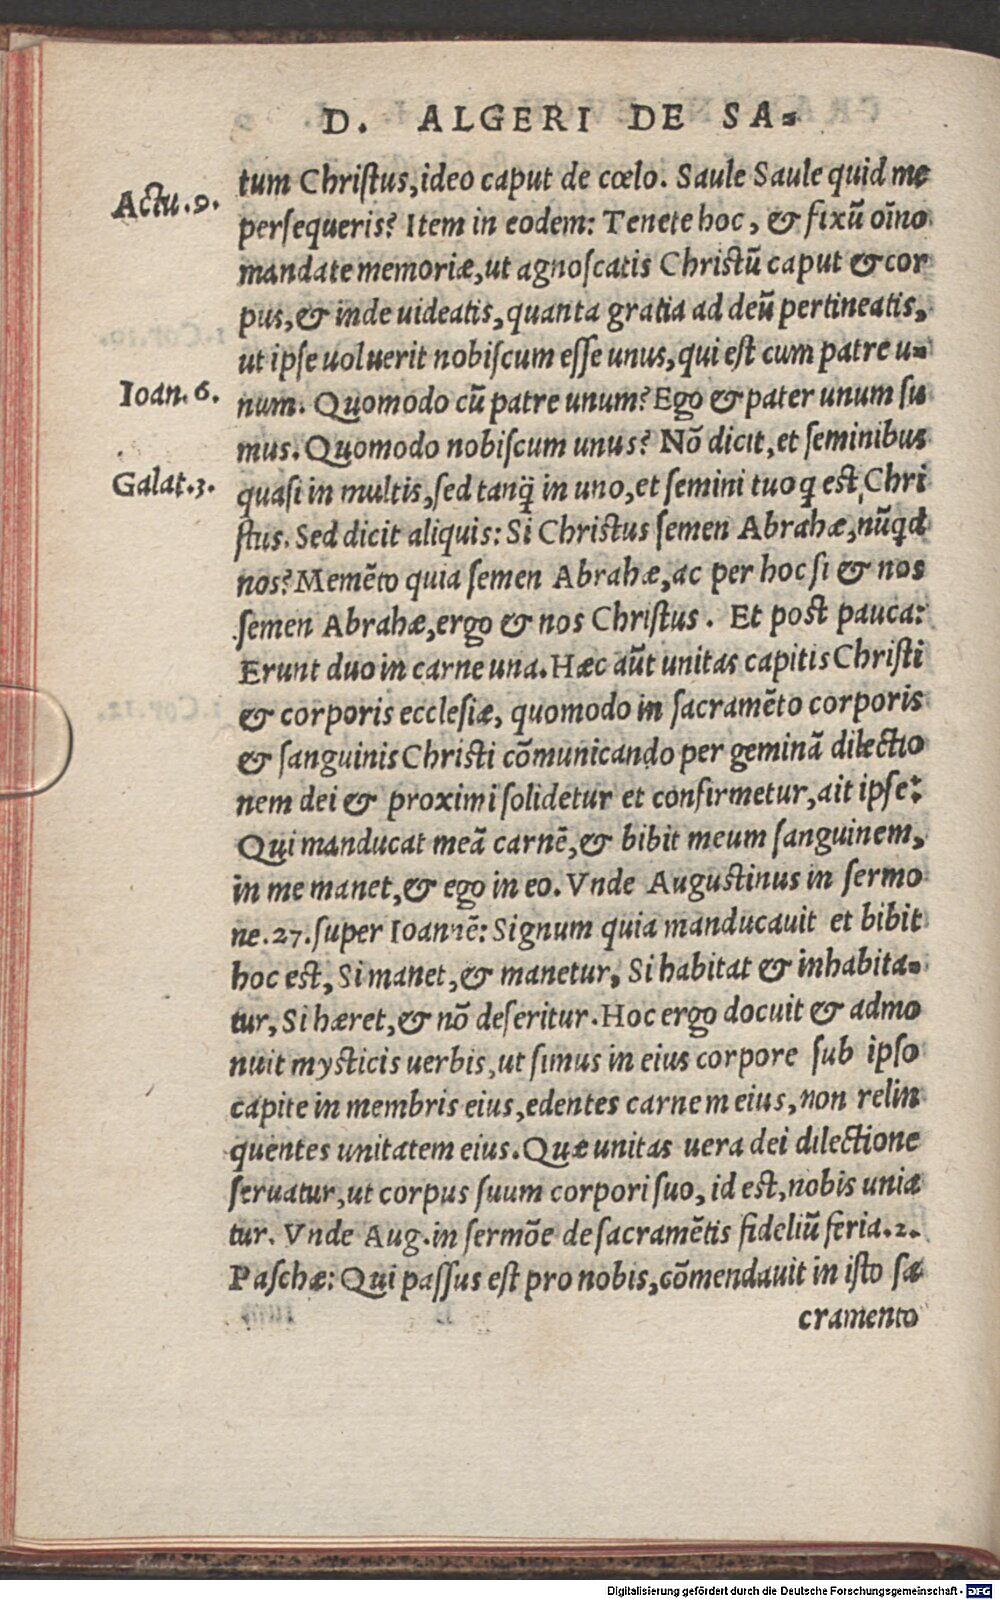 D. ALGERI DE SA-
Actu.9.
tum Chriſtus, ideo caput de cœlo. Saule Saule quid me
perſequeris? Item in eodem: Tenete hoc, & fixū oīno
mandate memoriæ, ut agnoſcatis Chriſtū caput & cor
pus, & inde uideatis, quanta gratia ad deū pertineatis,
ut ipſe uoluerit nobiſcum eſſe unus, qui eſt cum patre u-
Ioan. 6.
num. Quomodo cū patre unum? Ego & pater unum ſu
mus. Quomodo nobiſcum unus? Nō dicit, et ſeminibus
Galat.3.
quaſi in multis, ſed tanq̄ in uno, et ſemini tuo q̄ eſt, Chri
ſtus. Sed dicit aliquis: Si Chriſtus ſemen Abrahæ, nūqd
nos? Memēto quia ſemen Abrahæ, ac per hoc ſi & nos
ſemen Abrahæ, ergo & nos Chriſtus. Et poſt pauca:
Erunt duo in carne una. Hæc aūt unitas capitis Chriſti
& corporis eccleſiæ, quomodo in ſacramēto corporis
& ſanguinis Chriſti cōmunicando per geminā dilectio
nem dei & proximi ſolidetur et confirmetur, ait ipſe:
Qui manducat meā carnē, & bibit meum ſanguinem,
in me manet, & ego in eo. Vnde Auguſtinus in ſermo
ne.27. ſuper Ioannē: Signum quia manducauit et bibit
hoc eſt, Si manet, & manetur, Si habitat & inhabita-
tur, Si hæret, & nō deſeritur. Hoc ergo docuit & admo
nuit myſticis uerbis, ut ſimus in eius corpore ſub ipſo
capite in membris eius, edentes carnem eius, non relin
quentes unitatem eius. Quæ unitas uera dei dilectione
ſeruatur, ut corpus ſuum corpori ſuo, id eſt, nobis unia
tur. Vnde Aug. in ſermōe de ſacramētis fideliū feria.2.
Paſchæ: Qui paſſus eſt pro nobis, cōmendauit in iſto ſa
cramento
Digitalisierung gefördert durch die Deutsche Forschungsgemeinschaft - DFG